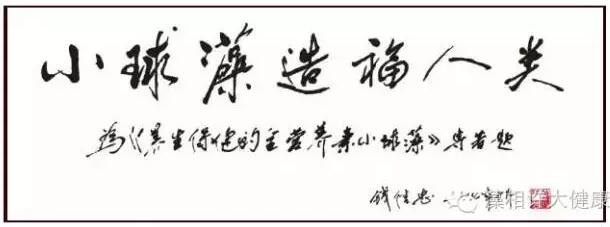 小球藻造福人类
为《养生保健的全营养素小球藻》专著题
钱信忠
藻相伴大健康